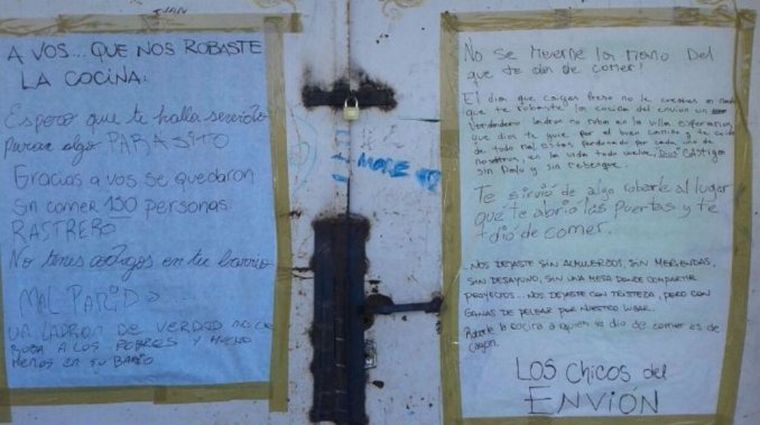 JUAN
A VOS... QUE NOS ROBASTE
LA COCINA:
Espero que te halla servido
para algo PARASITO
Gracias a vos se quedaron
sin comer 150 personas
RASTRERO
No tenes codigos en tu barrio
MAL PARIDO
UN LADRON DE VERDAD NO LE
ROBA A LOS POBRES Y MENO
MENOS EN SU BARIO
MORE
No se muerde la mano Del
que te da de comer!
El dia que caigas preso no le cuentes a nadie
que te robaste la cocina del envion un
verdadero ladron no roba en la villa esperamos
que dios te guie por el buen camino y te cuide
de todo mal estas perdonado por cada uno de
nosotros, en la vida todo vuelve, Dios CASTIGA
sin Palo y sin rebenque.
Te sirvió de algo robarle al lugar
que te abrió las puertas y te
dió de comer.
..NOS DEJASTE SIN ALMUERZOS, SIN MERIENDAS,
SIN DESAYUNO, SIN UNA MESA DONDE COMPARTIR
PROYECTOS... NOS DEJASTE CON TRISTEZA, PERO CON
GANAS DE PELEAR POR NUESTRO LUGAR.
Robarle la cocina a quien te dio de comer es de
cagon.
LOS CHICOS del
ENVIÓN